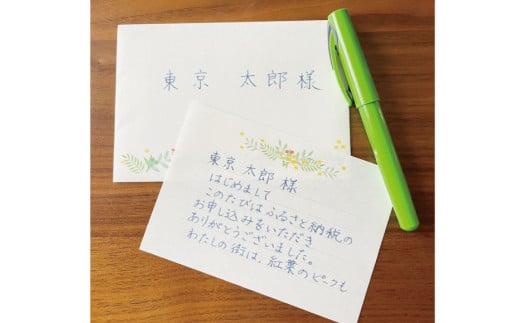 東京 太郎様
東京 太郎 様
はじめまして
このたびは ふるさと納税の
お申し込みをいただき
ありがとうございました。
わたしの街は、紅葉のピークも